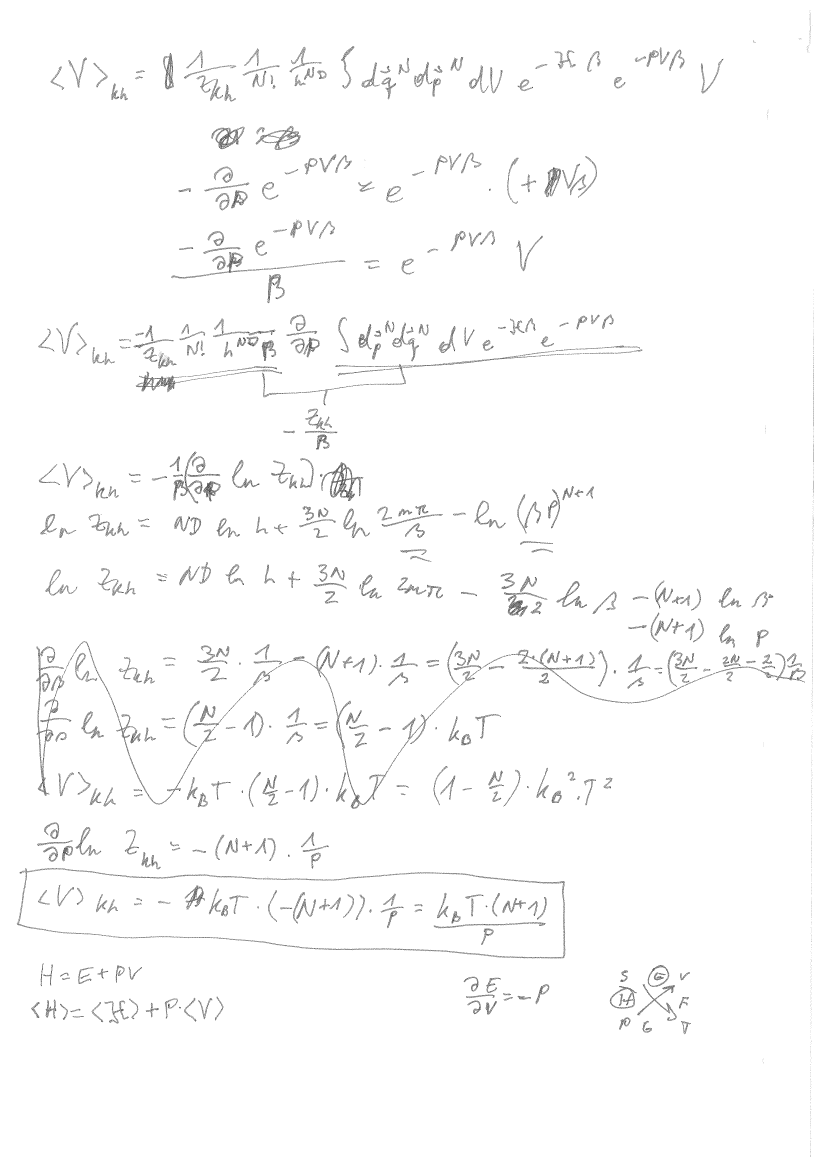 <V>_kh = 1/Z_kh 1/N! 1/h^ND ∫ dq⃗^N dp⃗^N dV e^-ℋβ e^-PVβ V
- ∂/∂P e^-PVβ = e^-PVβ · (+Vβ)
(- ∂/∂P e^-PVβ)/β = e^-PVβ V
<V>_kh = -1/Z_kh 1/N! 1/(h^ND β) ∂/∂P ∫ dp⃗^N dq⃗^N dV e^-ℋβ e^-PVβ
- Z_kh/β
<V>_kh = - 1/β (∂/∂P ln Z_kh)
ln Z_kh = ND ln h + 3N/2 ln 2mπ/β - ln (βP)^N+1
ln Z_kh = ND ln h + 3N/2 ln 2mπ - 3N/2 ln β - (N+1) ln β
- (N+1) ln P
∂/∂β ln Z_kh = 3N/2 · 1/β - (N+1) · 1/β = (3N/2 - 2·(N+1)/2) · 1/β = (3N/2 - 2N/2 - 2/2) 1/β
∂/∂β ln Z_kh = (N/2 - 1) · 1/β = (N/2 - 1) · k_B T
<V>_kh = - k_B T · (N/2 - 1) · k_B T = (1 - N/2) · k_B² · T²
∂/∂P ln Z_kh = - (N+1) · 1/P
<V>_kh = - k_B T · (-(N+1)) · 1/P = k_B T · (N+1)/P
H = E + PV
∂E/∂V = - P
S E V
<H> = <ℋ> + P · <V>
H F
P G T